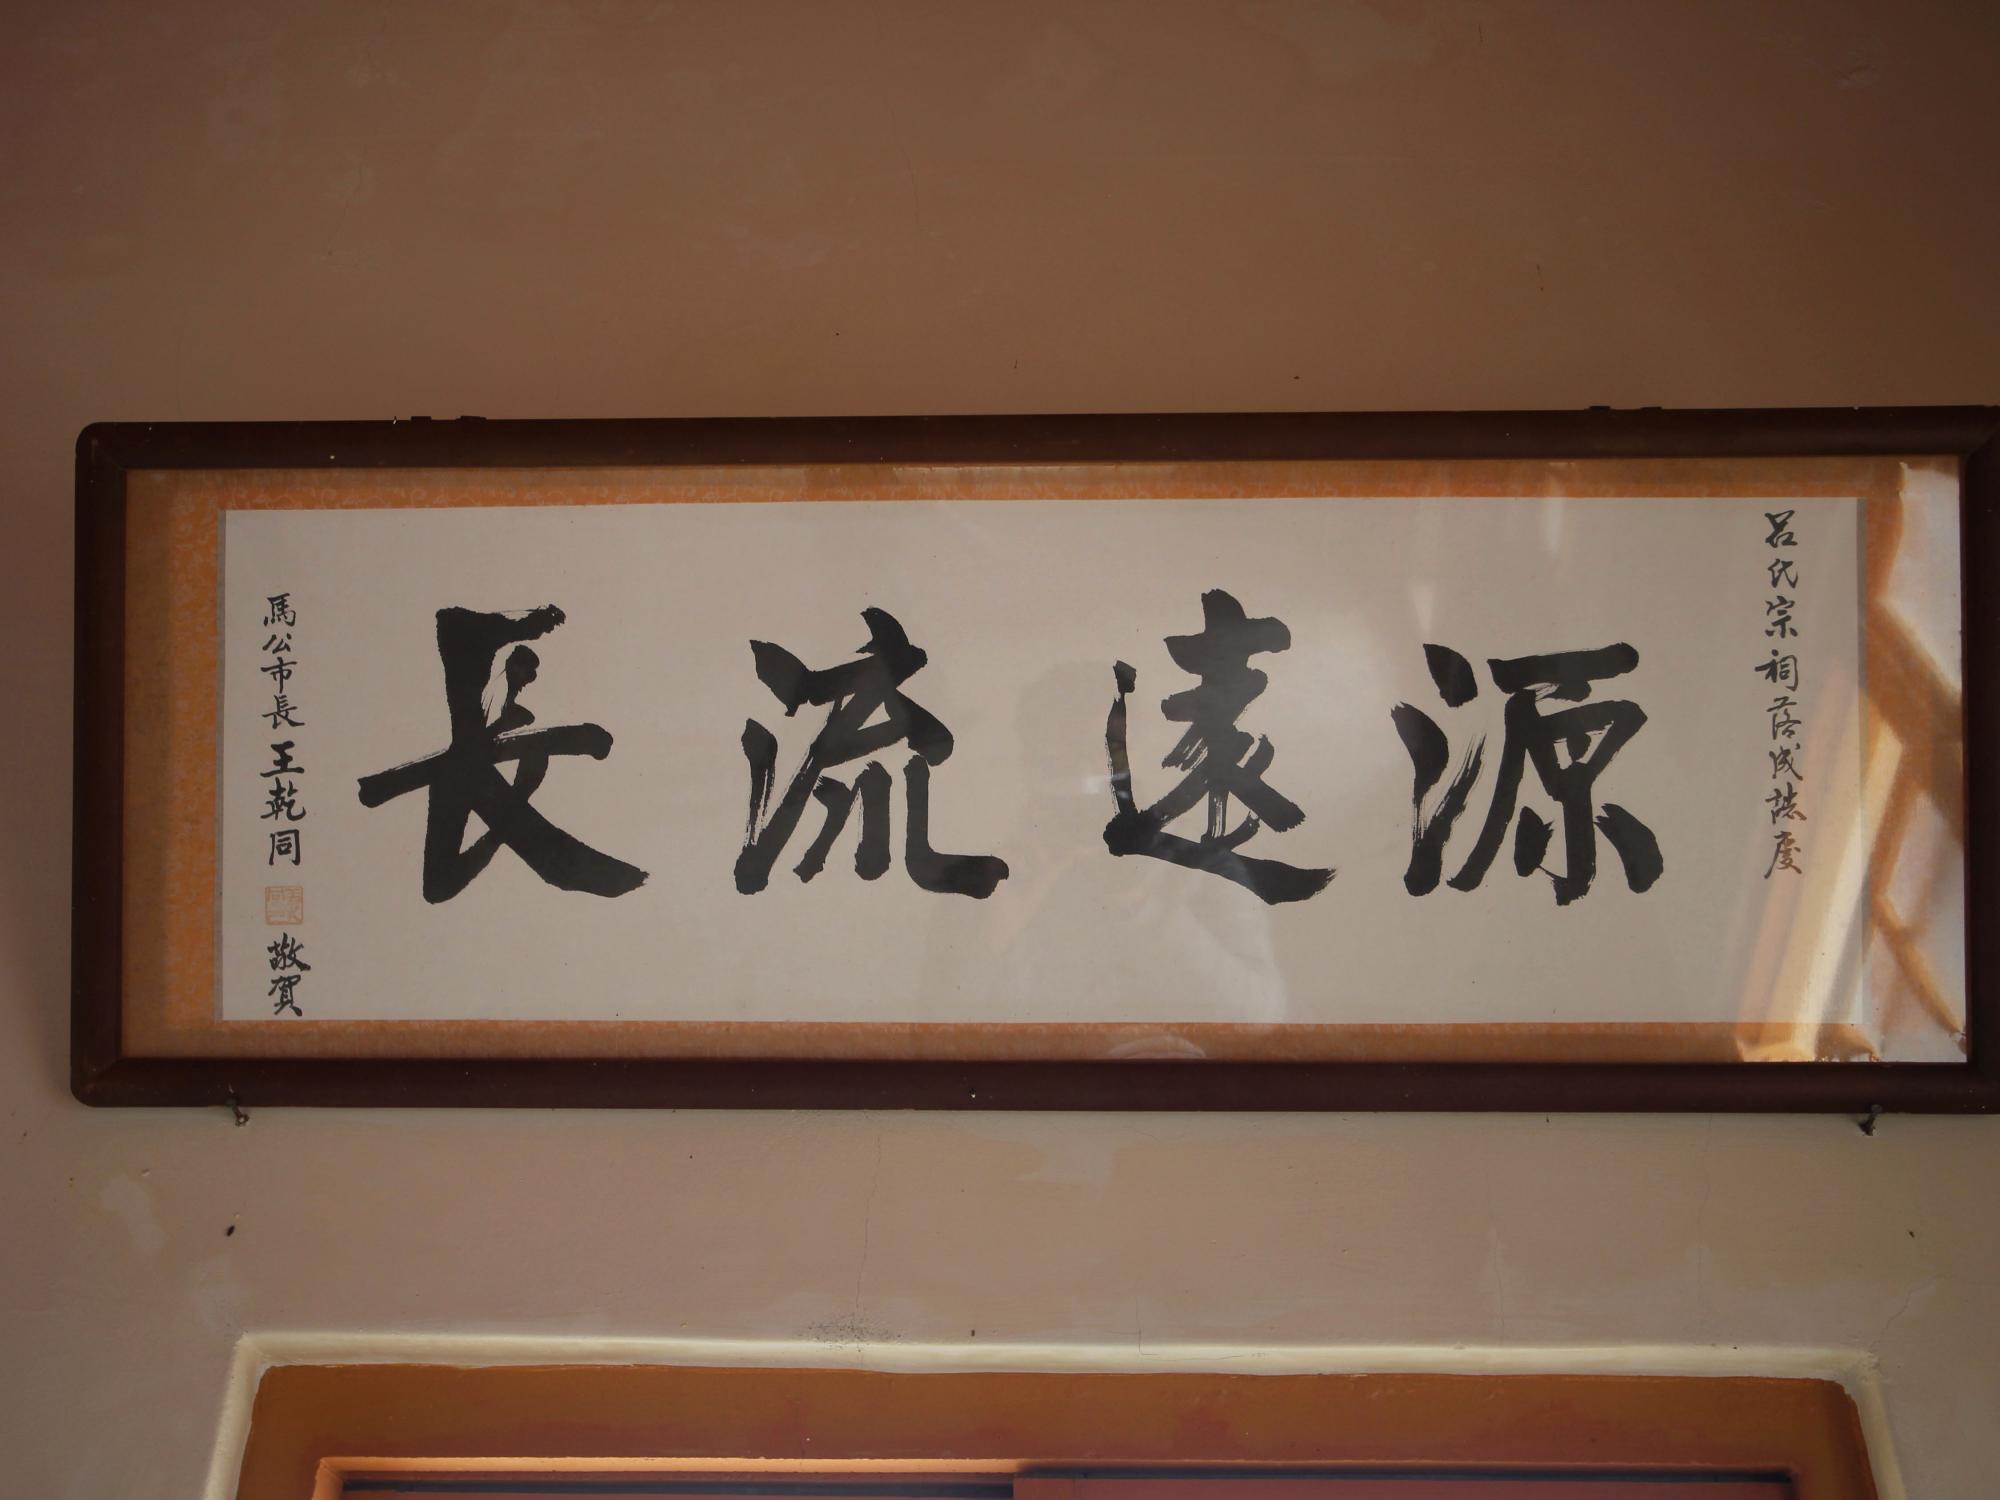 呂氏宗祠落成誌慶
源遠流長
馬公市長王乾同
敬賀